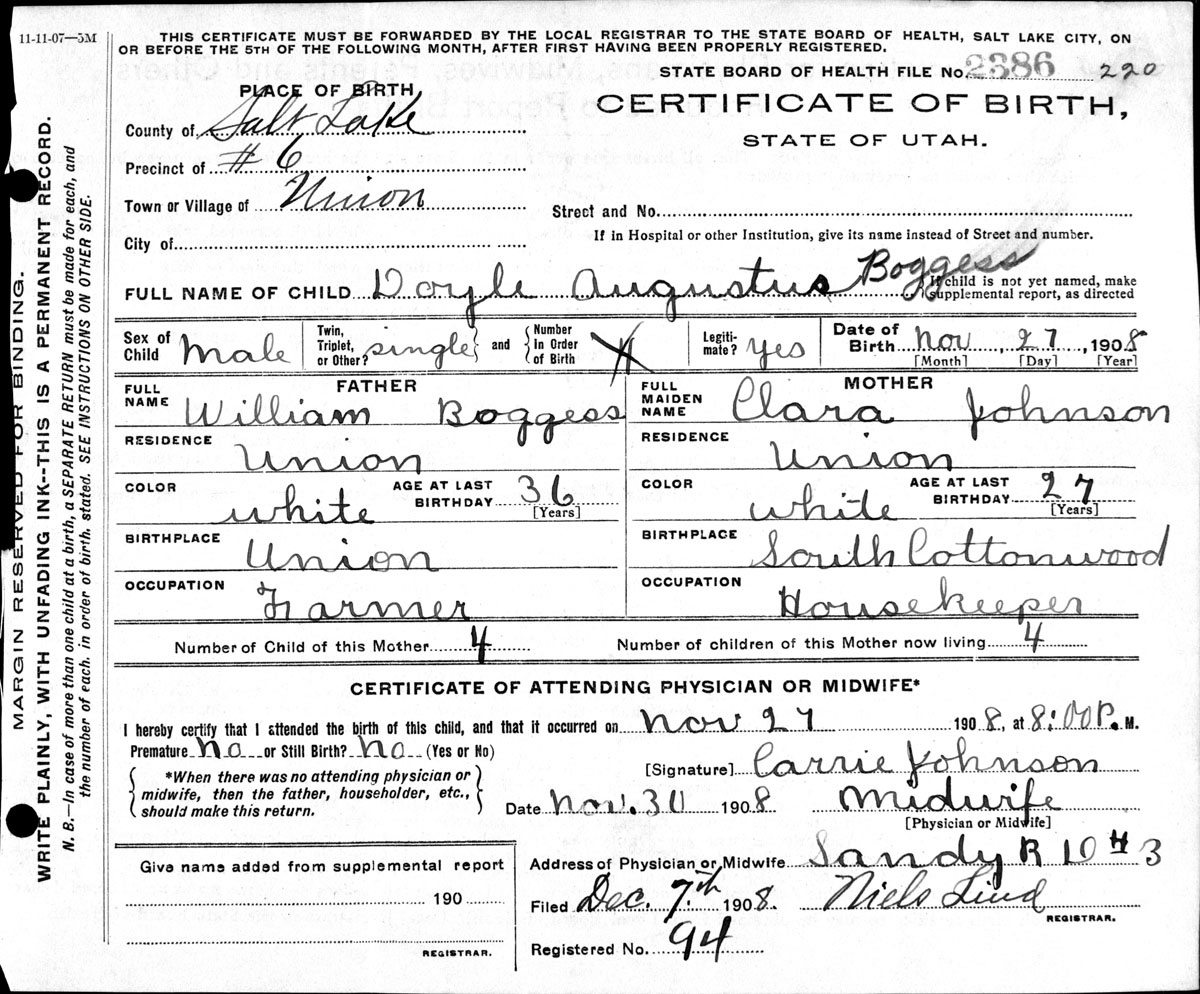 11-11-07—5M
THIS CERTIFICATE MUST BE FORWARDED BY THE LOCAL REGISTRAR TO THE STATE BOARD OF HEALTH, SALT LAKE CITY, ON
OR BEFORE THE 5TH OF THE FOLLOWING MONTH, AFTER FIRST HAVING BEEN PROPERLY REGISTERED.
STATE BOARD OF HEALTH FILE No. 2386 220
PLACE OF BIRTH
CERTIFICATE OF BIRTH,
STATE OF UTAH.
County of Salt Lake
Precinct of #6
Town or Village of Union
Street and No.
City of
If in Hospital or other Institution, give its name instead of Street and number.
FULL NAME OF CHILD Doyle Augustus Boggess
If child is not yet named, make
supplemental report, as directed
Sex of Child Male
Twin, Triplet, or Other? single and Number In Order of Birth
Legitimate? yes
Date of Birth Nov 27, 1908
[Month] [Day] [Year]
FATHER
FULL NAME William Boggess
RESIDENCE Union
COLOR white AGE AT LAST BIRTHDAY 36
[Years]
BIRTHPLACE Union
OCCUPATION Farmer
MOTHER
FULL MAIDEN NAME Clara Johnson
RESIDENCE Union
COLOR white AGE AT LAST BIRTHDAY 27
[Years]
BIRTHPLACE South Cottonwood
OCCUPATION Housekeeper
Number of Child of this Mother 4 Number of children of this Mother now living 4
CERTIFICATE OF ATTENDING PHYSICIAN OR MIDWIFE*
I hereby certify that I attended the birth of this child, and that it occurred on Nov 27 1908, at 8:00 P. M.
Premature no or Still Birth? no (Yes or No)
*When there was no attending physician or
midwife, then the father, householder, etc.,
should make this return.
[Signature] Carrie Johnson
Date Nov. 30 1908 Midwife
[Physician or Midwife]
Give name added from supplemental report
190
REGISTRAR.
Address of Physician or Midwife Sandy R D # 3
Filed Dec. 7th 1908. Niels Lind
REGISTRAR.
Registered No. 94
MARGIN RESERVED FOR BINDING.
WRITE PLAINLY, WITH UNFADING INK--THIS IS A PERMANENT RECORD.
N. B.—In case of more than one child at a birth, a SEPARATE RETURN must be made for each, and
the number of each, in order of birth, stated. SEE INSTRUCTIONS ON OTHER SIDE.